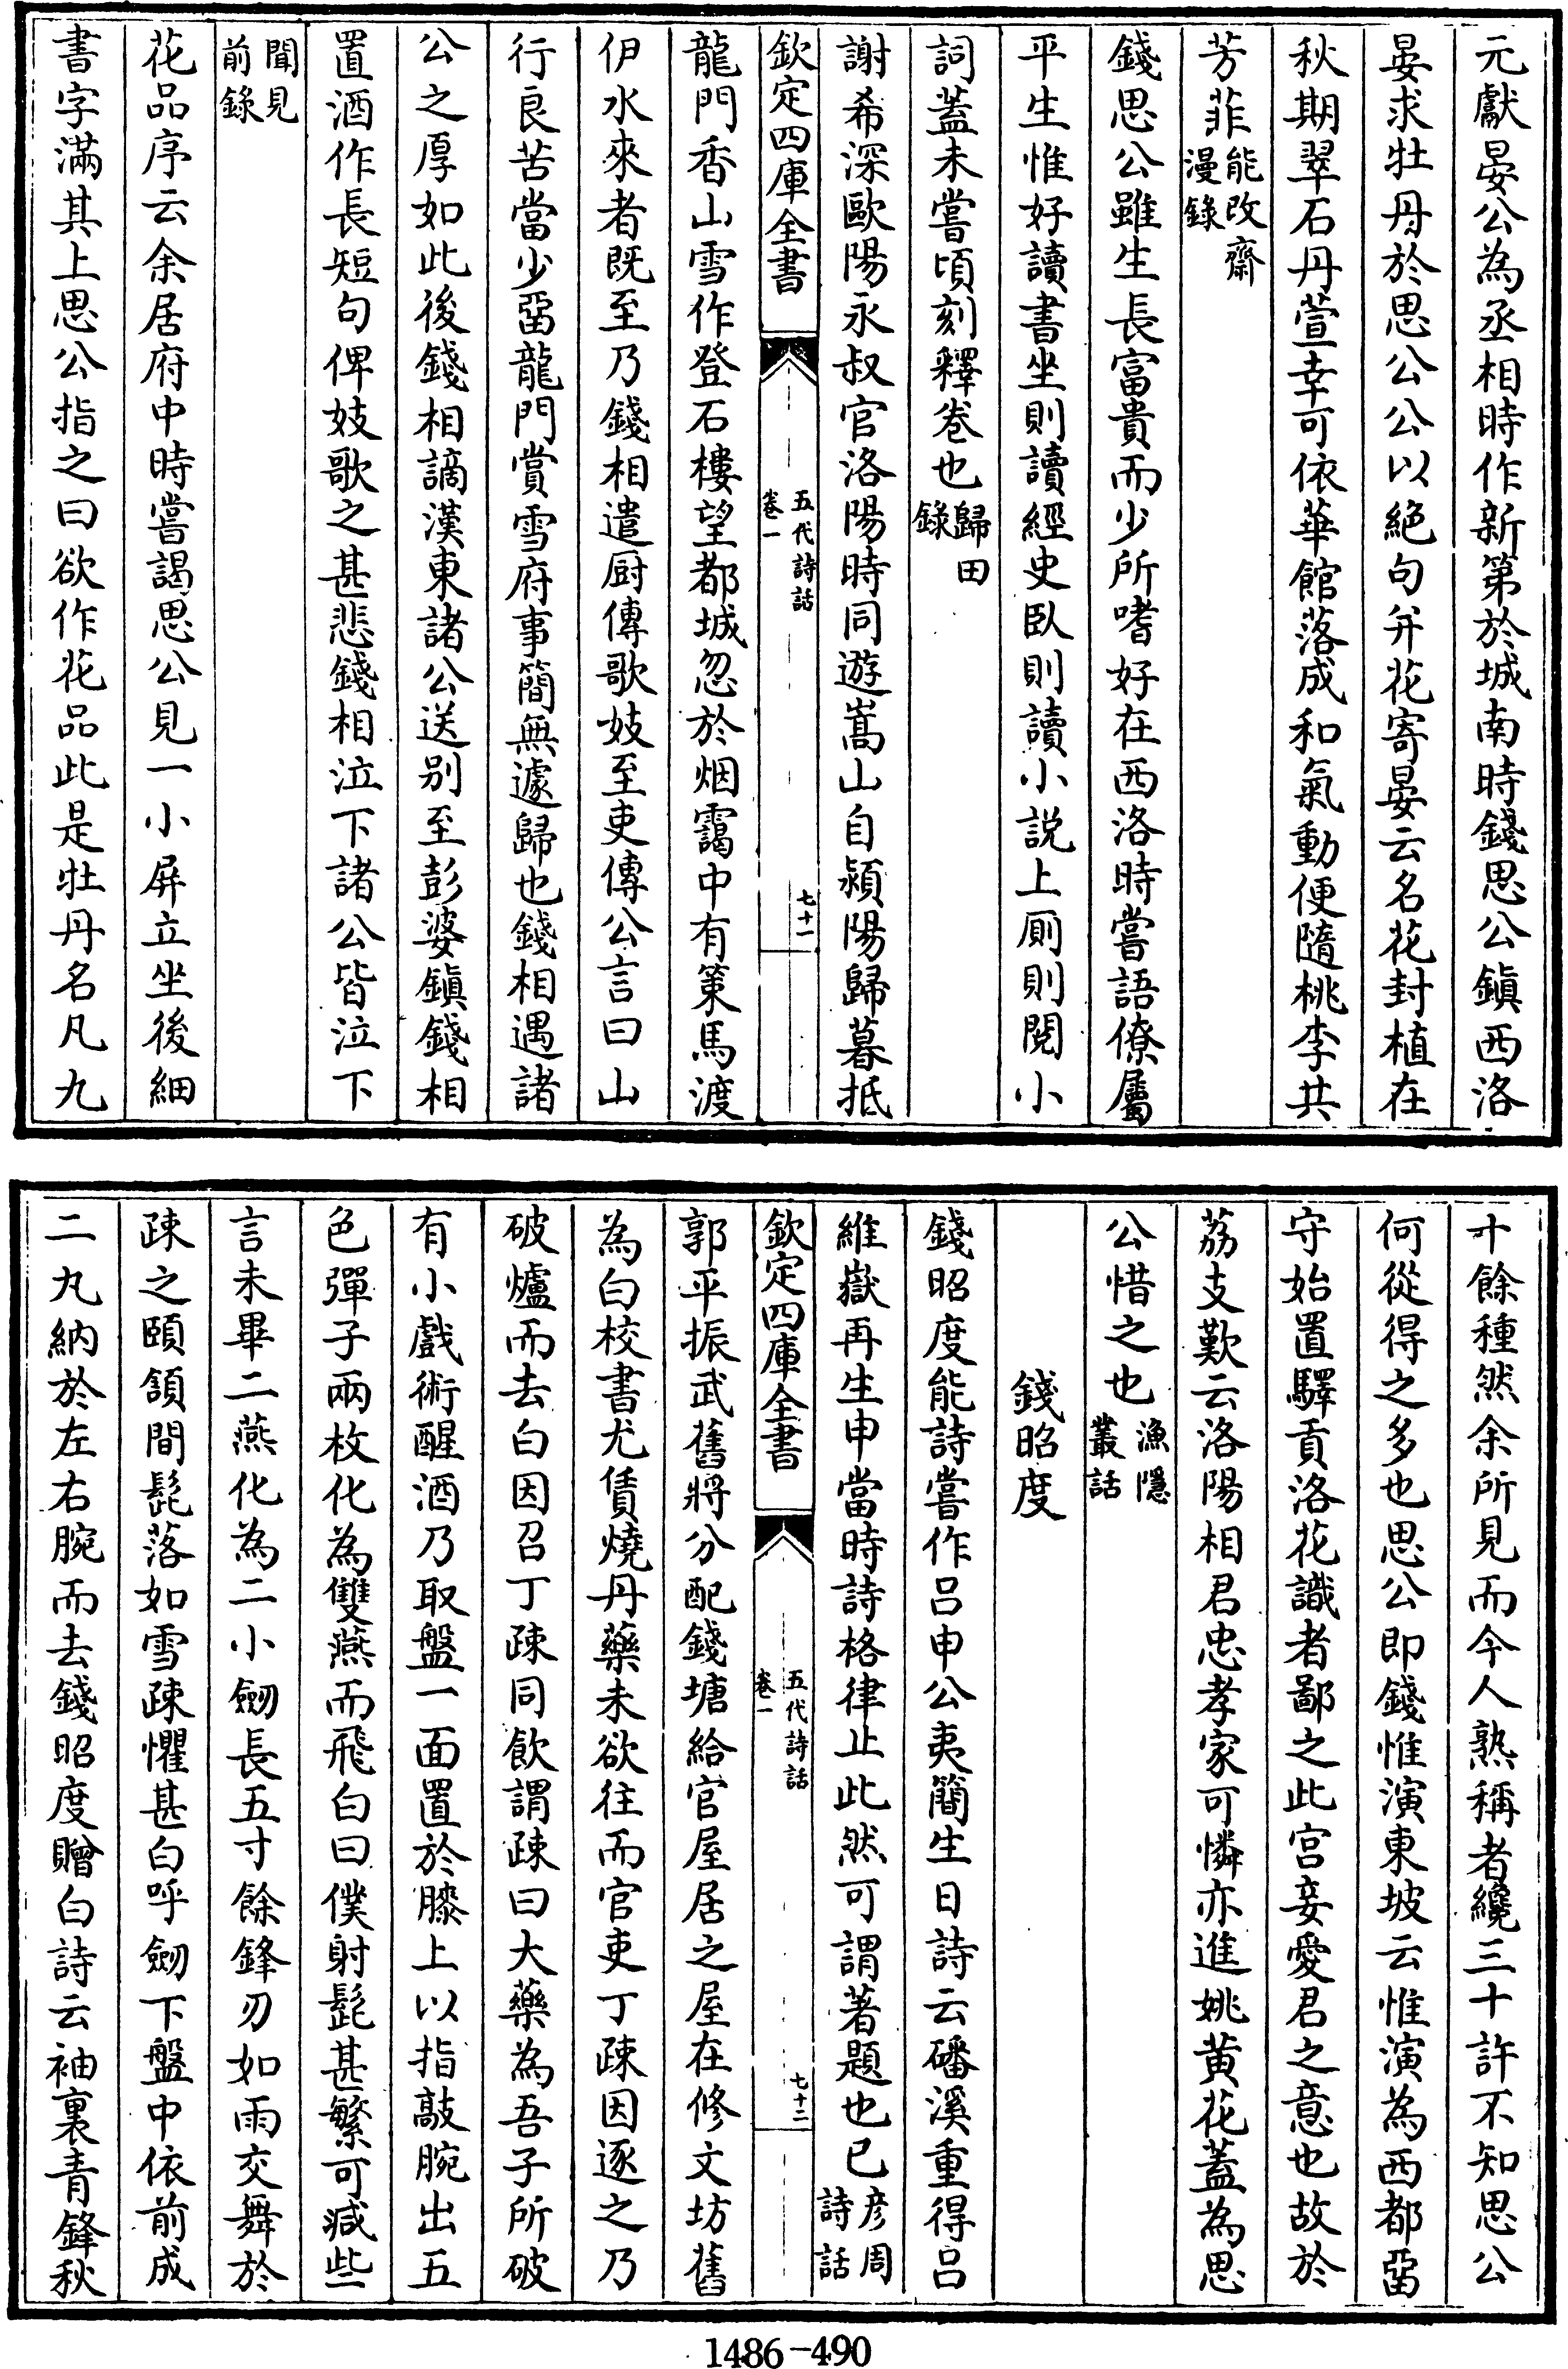 元獻晏公為丞相時作新第於城南時錢思公鎮西洛
晏求牡丹於思公公以絶句并花寄晏云名花封植在
秋期翠石丹萱幸可依華館落成和氣動便隨桃李共
芳菲能改齋漫錄
錢思公雖生長富貴而少所嗜好在西洛時嘗語僚屬
平生惟好讀書坐則讀經史臥則讀小説上厠則閱小
詞蓋未嘗頃刻釋卷也歸田錄
謝希深歐陽永叔官洛陽時同遊嵩山自潁陽歸暮抵
欽定四庫全書
五代詩話
卷一
七十一
龍門香山雪作登石樓望都城忽於烟靄中有策馬渡
伊水來者既至乃錢相遣厨傳歌妓至吏傳公言曰山
行良苦當少畱龍門賞雪府事簡無遽歸也錢相遇諸
公之厚如此後錢相謫漢東諸公送别至彭婆鎮錢相
置酒作長短句俾妓歌之甚悲錢相泣下諸公皆泣下
聞見前錄
花品序云余居府中時嘗謁思公見一小屏立坐後細
書字滿其上思公指之曰欲作花品此是牡丹名凡九
十餘種然余所見而今人熟稱者纔三十許不知思公
何從得之多也思公即錢惟演東坡云惟演為西都畱
守始置驛貢洛花識者鄙之此宫妾愛君之意也故於
荔支歎云洛陽相君忠孝家可憐亦進姚黄花蓋為思
公惜之也漁隱叢話
錢昭度
錢昭度能詩嘗作吕申公夷簡生日詩云磻溪重得吕
維嶽再生申當時詩格律止此然可謂著題也已彦周詩話
欽定四庫全書
五代詩話
卷一
七十二
郭平振武舊將分配錢塘給官屋居之屋在修文坊舊
為白校書尤賃燒丹藥未欲往而官吏丁疎因逐之乃
破爐而去白因召丁疎同飲謂疎曰大藥為吾子所破
有小戲術醒酒乃取盤一面置於膝上以指敲腕出五
色彈子兩枚化為雙燕而飛白曰僕射髭甚繁可減些
言未畢二燕化為二小劒長五寸餘鋒刃如雨交舞於
疎之頤頷間髭落如雪疎懼甚白呼劒下盤中依前成
二丸納於左右腕而去錢昭度贈白詩云袖裏青鋒秋
1486-490